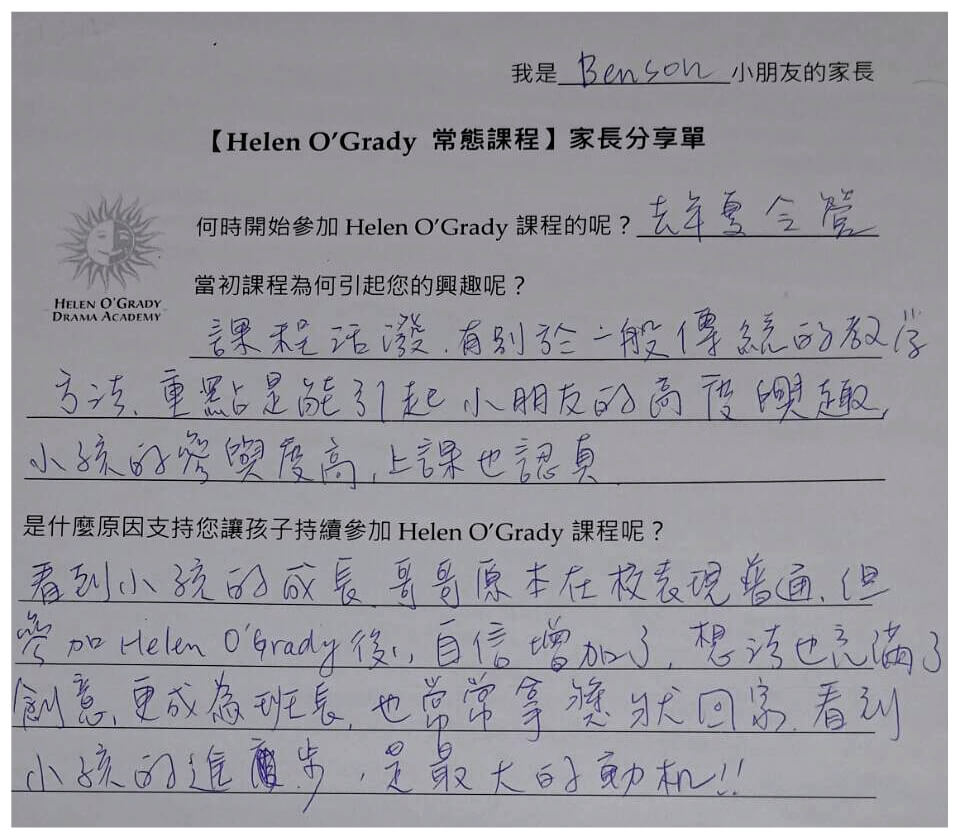 我是 Benson 小朋友的家長
【Helen O'Grady 常態課程】家長分享單
何時開始參加 Helen O'Grady 課程的呢？去年夏令營
HELEN O'GRADY
DRAMA ACADEMY
當初課程為何引起您的興趣呢？
課程活潑，有別於一般傳統的教学
方法，重點是能引起小朋友的高度興趣，
小孩的參與度高，上課也認真
是什麼原因支持您讓孩子持續參加 Helen O'Grady 課程呢？
看到小孩的成長，哥哥原本在校表現普通，但
參加 Helen O'Grady 後，自信增加了，想法也充滿了
創意，更成為班長，也常常拿獎狀回家，看到
小孩的進步，是最大的動机!!